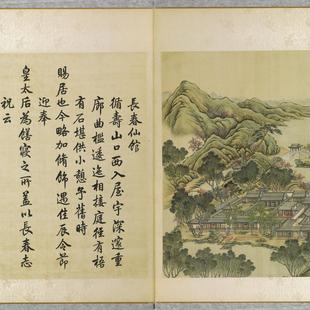 長春仙館
循壽山口西入屋宇深邃重
廊曲檻逶迤相接庭徑有梧
有石堪供小憩予舊時
賜居也今略加脩飾遇佳辰令節
迎奉
皇太后為饍寢之所蓋以長春志
祝云